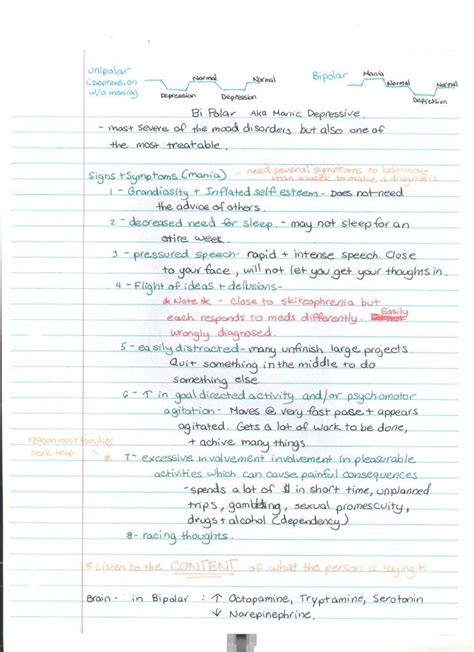 Unipolar
(Depression
w/o mania)
Normal
Normal
Depression
Depression
Bipolar
Mania
Normal
Normal
Depression
Bi Polar AKA Manic Depressive.
- most severe of the mood disorders but also one of
the most treatable.
Signs + Symptoms (mania) - need several symptoms to last more
than a week to make a diagnosis
1 - Grandiasity + Inflated self esteem - Does not need
the advice of others.
2 - decreased need for sleep. - may not sleep for an
etire week.
3 - pressured speech - rapid + intense speech. Close
to your face, will not let you get your thoughts in.
4 - Flight of ideas + delusions -
* Note * - close to skitzophrenia but
each responds to meds differently. Easily
wrongly diagnosed.
5 - easily distracted - many unfinish large projects.
Quit something in the middle to do
something else
6 - ↑ in goal directed activity and/or psychomotor
agitation - Moves @ very fast pase + appears
agitated. Gets a lot of work to be done,
+ achive many things
reason most families
seek help
* 7 - excessive involvement involvement in pleasurable
activities which can cause painful consequences
- spends a lot of $ in short time, unplanned
trips, gambling, sexual promescuity,
drugs + alcohol (dependency)
8 - racing thoughts.
* Listen to the CONTENT of what the person is saying *
Brain - in Bipolar : ↑ Octopamine, Tryptamine, Serotonin
↓ Norepinephrine.